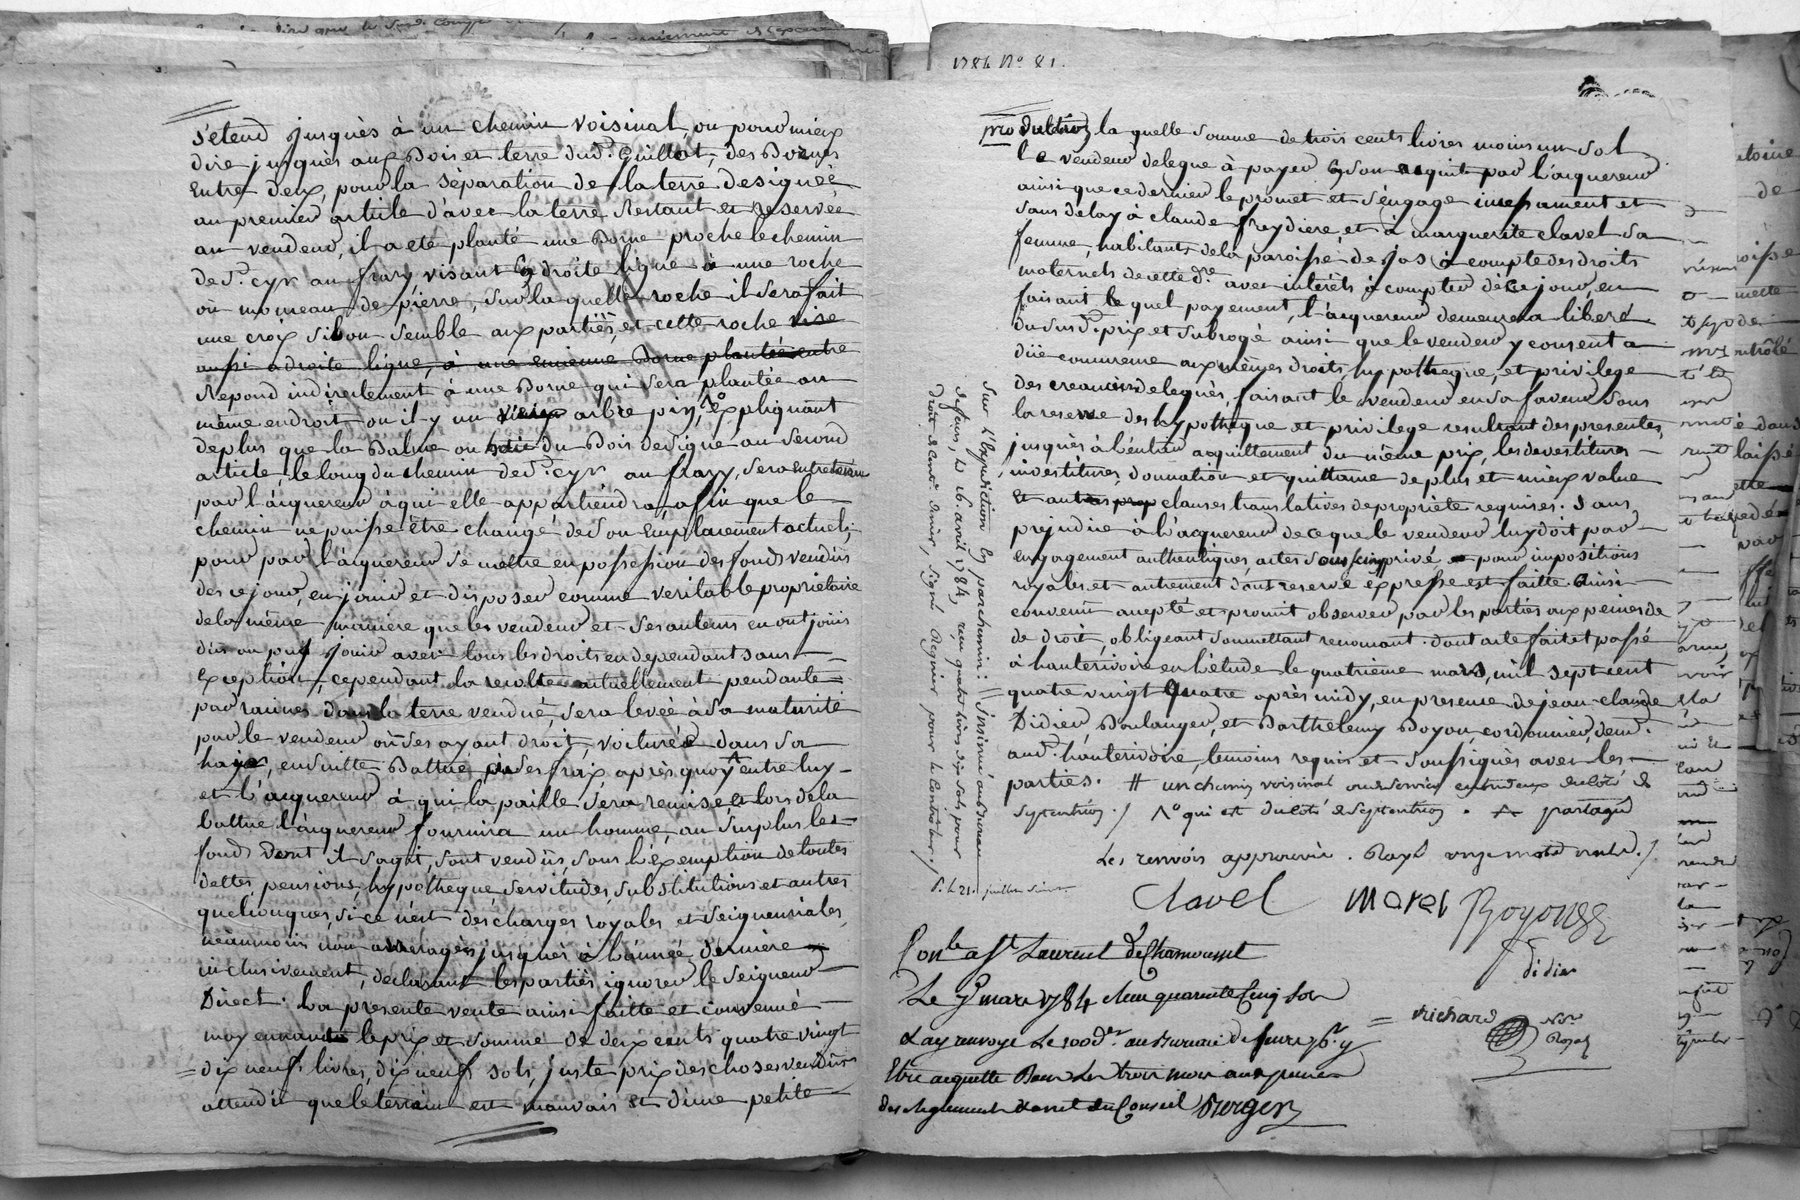 s'etend jusquès à un chemin voisinal, ou pour mieux
dire jusquès aux Bois et terre dud. Guillot, des Bornes
Entre deux, pour la séparation de la terre designée
au premier article d'avec la terre Restant et reservée
au vendeur, il a eté planté une Borne proche le chemin
de St. cyr au frary, visant En droite ligne à une roche
où morneau de pierre, sur la quelle roche il sera fait
une croix si bon semble aux partiès, et cette roche vise
aussi a droite ligne, à une encienne Borne plantée entre
Repond indirectement à une Borne qui sera plantée au
même endroit ou il y un vieux arbre pin, Expliquant
deplus que la Balme ou haie du Bois designé au second
article, le long du chemin de St. cyr au frary, sera entretenu
par l'acquereur à qui elle appartiendra, afin que le
chemin ne puisse être changé de son Emplacement actuel;
pour par l'acquereur se mettre en possession des fonds vendus
des ce jour, en jouir et disposer comme veritable proprietaire
de la même manière que les vendeur et ses auteurs en ont joüis
dus ou pus joüir avec tous les droits en dependant sans
exception, cependant la recolte actuellement pendante
par racines dans la terre vendue, sera levée à sa maturité
par le vendeur où ses ayant droit, voiturée dans sa
haye, ensuitte Battue à ses fraix, après quoy entre luy
et l'acquereur à qui la paille sera remise et lors de la
battue l'acquereur fournira un homme, au surplus les
fonds dont il sagit, sont vendus, sous l'exemption de toutes
dettes, pensions, hypotheque, servitudes, substitutions et autres
quelconques, si ce n'est des charges royales et seigneuriales
néanmoins non arreragès jusquès à l'année dernière
inclusivement, declarant les partiès, ignorer le Seigneur
Direct. La presente vente ainsi faitte et convenue
moyennant le prix et somme de deux cents quatre vingt
dix neufs livres, dix neufs sols, juste prix des choses vendus
attendu que le terrain est mauvais et d'une petite
1784 N° 81.
production, la quelle somme de trois cents livres moins un sol
le vendeur delegue à payer En son acquit par l'acquereur
ainsi que ce dernier le promet et s'engage incessament et
sans delay à claude freydiere, et à marguerite clavel sa
femme, habitants de la paroisse de jas à compte des droits
maternels de cette dre. avec intérêts à compter dès ce jour, en
faisant le quel payement, l'acquereur demeurera liberé
du susd. prix et subrogé ainsi que le vendeur y consent a
düe concurrence aux mêmes droits, hypotheque, et privilege
des creanciers deleguès, faisant le vendeur en sa faveur sous
la reserve des hypotheque et privilege resultant des presentes,
jusquès à l'entier acquittement du même prix, les devestitures
investitures, donnation et quittance de plus et mieux value
Et autres prop clauses translatives de proprieté requises. sans
prejudice à l'acquereur de ce que le vendeur luy doit par
engagement authentiques, actes sous seing privé pour impositions
royales, et autrement dont reserve expresse est faitte. ainsi
convenu accepté et promit observer par les parties aux peines de
de droit, obligeant soumettant renoncant. dont acte fait et passé
à hauterivoire en l'étude le quatrieme mars, mil sept cent
quatre vingt quatre après midy, en presence de jean claude
Didier, Boulanger, et Barthelemy Boyou cordonnier, deud.
aud. hauterivoire, temoins requis et soussignès avec les
parties. # un chemin voisinal ou deservice entredeux du coté de
septentrion ./ 1° qui est du coté de septentrion . + partagée
Les renvois approuvés . Rayé onze mots nuls ./
Sur l'Expedition En parchemin: = Insinué au Bureau
de feurs, le 16. avril 1784, reçu quatre livres dix sols pour
Droit de Cent. denier, signé Reynier pour le Controleur ./
Clavel Marel Boyoud
Didier
richard
Nre
Royal
Con.le a St Laurent de Chamousset
Le 9 mars 1784 Reçu quarente Cinq sols
Lay renvoyé Le 100d.er au Bureau de feurs p.r y
Etre acquitté Dans Les trois mois aux peines
des reglements et arret du Conseil Burger